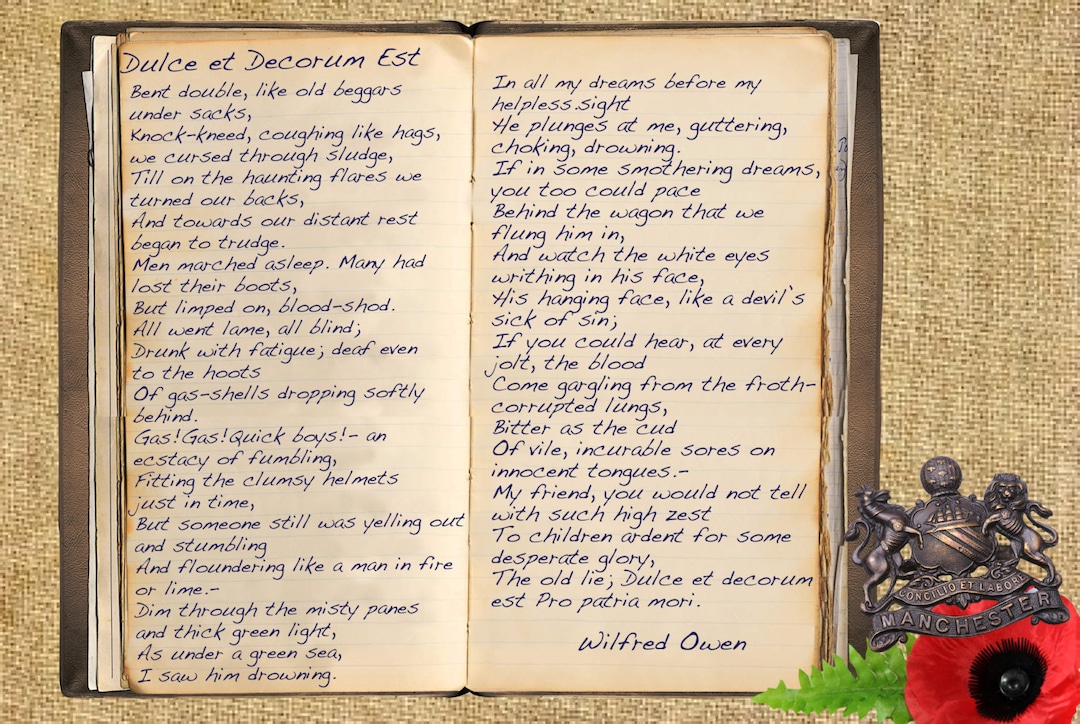 Dulce et Decorum Est
Bent double, like old beggars
under sacks,
Knock-kneed, coughing like hags,
we cursed through sludge,
Till on the haunting flares we
turned our backs,
And towards our distant rest
began to trudge.
Men marched asleep. Many had
lost their boots,
But limped on, blood-shod.
All went lame, all blind;
Drunk with fatigue; deaf even
to the hoots
Of gas-shells dropping softly
behind.
Gas!Gas!Quick boys!- an
ecstacy of fumbling,
Fitting the clumsy helmets
just in time,
But someone still was yelling out
and stumbling
And floundering like a man in fire
or lime.-
Dim through the misty panes
and thick green light,
As under a green sea,
I saw him drowning.
In all my dreams before my
helpless.sight
He plunges at me, guttering,
choking, drowning.
If in some smothering dreams,
you too could pace
Behind the wagon that we
flung him in,
And watch the white eyes
writhing in his face,
His hanging face, like a devil`s
sick of sin;
If you could hear, at every
jolt, the blood
Come gargling from the froth-
corrupted lungs,
Bitter as the cud
Of vile, incurable sores on
innocent tongues.-
My friend, you would not tell
with such high zest
To children ardent for some
desperate glory,
The old lie; Dulce et decorum
est Pro patria mori.
Wilfred Owen
CONCILIO ET LABORE
MANCHESTER